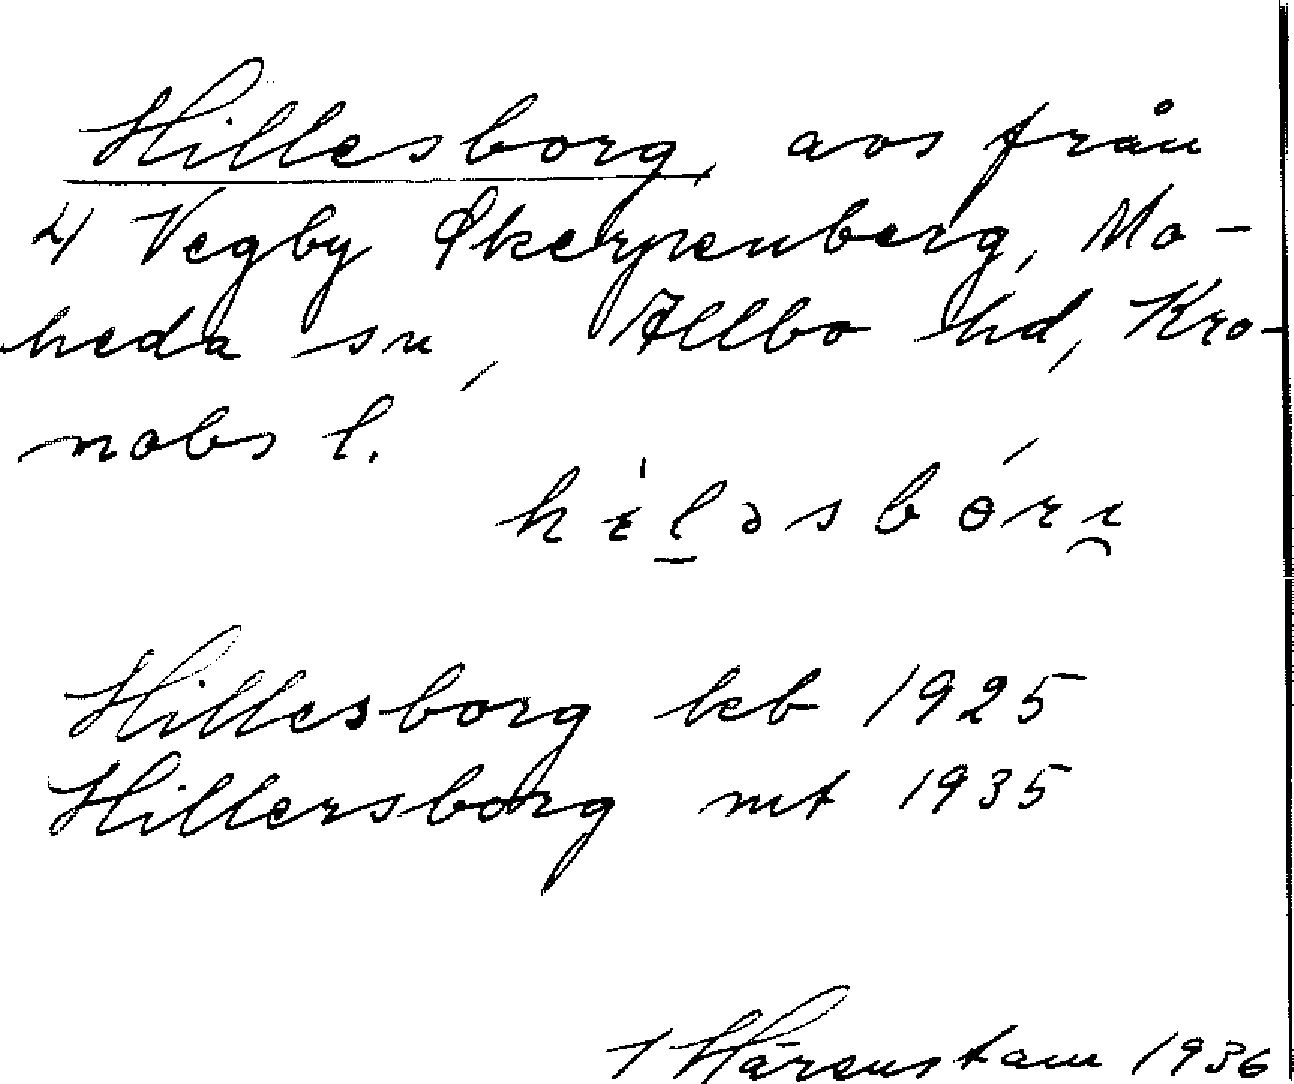 Hillesborg, avs från
4 Vegby Skerpenberg, Mo-
heda sn, Allbo hd, Kro-
nobs l.
Hillesborg kb 1925
Hillersborg mt 1935
Härenstam 1936